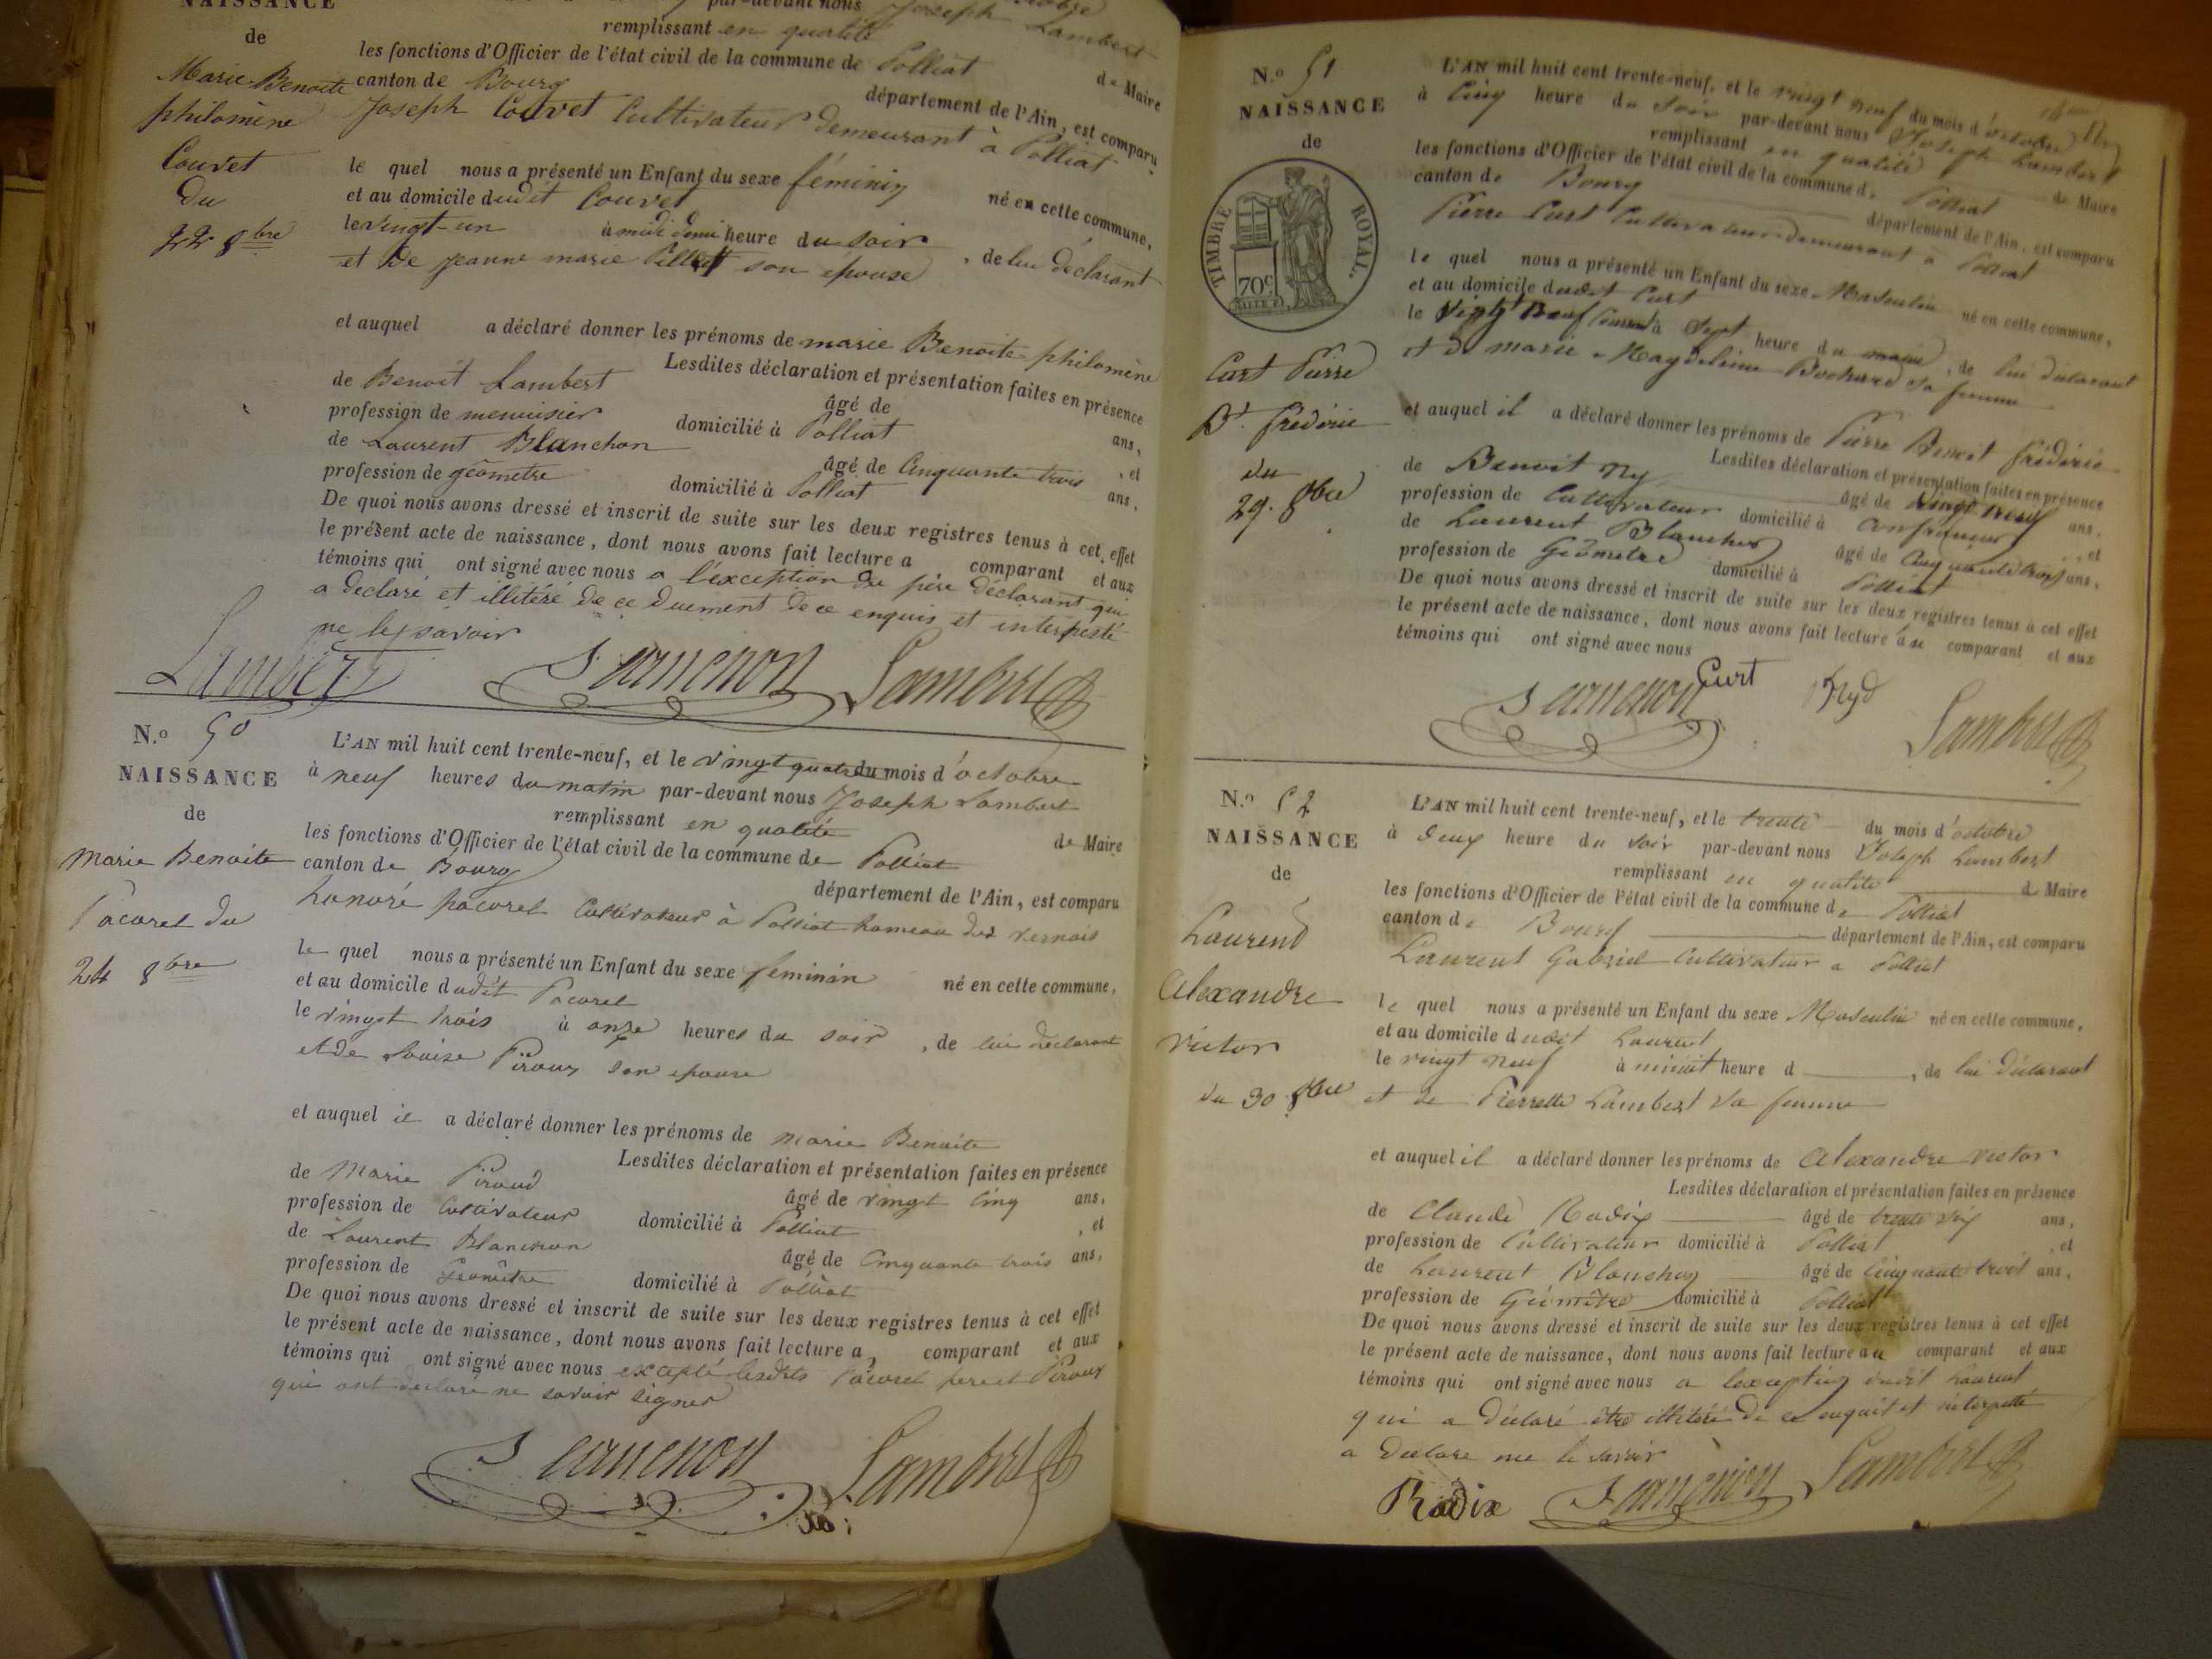 NAISSANCE
de
Marie Benoite
philomène
Couvet
du
22 8bre
par-devant nous Joseph Lambert
remplissant en qualité de Maire
les fonctions d'Officier de l'état civil de la commune de Polliat
canton de Bourg département de l'Ain, est comparu
Joseph Couvet Cultivateur demeurant à Polliat
le quel nous a présenté un Enfant du sexe féminin né en cette commune,
et au domicile dudit Couvet
le vingt-un à midi demi heure du soir, de lui déclarant
et de jeanne marie son épouse
et auquel a déclaré donner les prénoms de marie Benoite philomène
Lesdites déclaration et présentation faites en présence
de Benoit Lambert âgé de ans,
profession de menuisier domicilié à Polliat, et
de Laurent Blanchon âgé de Cinquante trois ans,
profession de géomètre domicilié à Polliat
De quoi nous avons dressé et inscrit de suite sur les deux registres tenus à cet effet
le présent acte de naissance, dont nous avons fait lecture a comparant et aux
témoins qui ont signé avec nous a l'exception du père déclarant qui
a declaré et illitéré de ce duement de ce enquis et interpesté
ne le savoir
Lambert Lambert
N.o 50
NAISSANCE
de
Marie Benoite
Pacorel du
24 8bre
L'AN mil huit cent trente-neuf, et le vingt quatre du mois d'octobre
à neuf heures du matin par-devant nous Joseph Lambert
remplissant en qualité de Maire
les fonctions d'Officier de l'état civil de la commune de Polliat
canton de Bourg département de l'Ain, est comparu
honoré pacorel Cultivateur à Polliat hameau des vernais
le quel nous a présenté un Enfant du sexe feminin né en cette commune,
et au domicile dudit Pacorel
le vingt trois à onze heures du soir, de lui declarant
et de Louise Piroux son epouse
et auquel il a déclaré donner les prénoms de marie Benoite
Lesdites déclaration et présentation faites en présence
de Marie Piroud âgé de vingt Cinq ans,
profession de Cultivateur domicilié à Polliat, et
de Laurent Blanchon âgé de Cinquante trois ans,
profession de Géomètre domicilié à Polliat
De quoi nous avons dressé et inscrit de suite sur les deux registres tenus à cet effet
le présent acte de naissance, dont nous avons fait lecture a comparant et aux
témoins qui ont signé avec nous excepté lesdits Pacorel pere et Piroux
qui ont declaré ne savoir signer
Lambert
N.o 51
NAISSANCE
de
TIMBRE ROYAL.
70c.
Curt Pierre
Bt. fréderic
du
29. 8bre
L'AN mil huit cent trente-neuf, et le vingt neuf du mois d'octobre
à Cinq heure du Soir par-devant nous Joseph Lambert
remplissant en qualité de Maire
les fonctions d'Officier de l'état civil de la commune de Polliat
canton de Bourg département de l'Ain, est comparu
Pierre Curt Cultivateur demeurant a Polliat
le quel nous a présenté un Enfant du sexe Masculin né en cette commune,
et au domicile dudit Curt
le Vingt Neuf Courant à Sept heure du matin, de lui déclarant
et de marie Magdeleine Bochard sa femme
et auquel il a déclaré donner les prénoms de Pierre Benoit fréderic
Lesdites déclaration et présentation faites en présence
de Benoit Ny âgé de Vingt neuf ans,
profession de Cultivateur domicilié à Confrançon, et
de Laurent Blanchon âgé de Cinquante trois ans,
profession de Géomètre domicilié à Polliat
De quoi nous avons dressé et inscrit de suite sur les deux registres tenus à cet effet
le présent acte de naissance, dont nous avons fait lecture au comparant et aux
témoins qui ont signé avec nous
Curt Lambert
N.o 52
NAISSANCE
de
Laurend
Alexandre
victor
du 30 8bre
L'AN mil huit cent trente-neuf, et le trente du mois d'octobre
à deux heure du soir par-devant nous Joseph Lambert
remplissant en qualité de Maire
les fonctions d'Officier de l'état civil de la commune de Polliat
canton de Bourg département de l'Ain, est comparu
Laurent Gabriel Cultivateur a Polliat
le quel nous a présenté un Enfant du sexe Masculin né en cette commune,
et au domicile dudit Laurent
le vingt neuf à minuit heure d , de lui déclarant
et de Pierrette Lambert sa femme
et auquel il a déclaré donner les prénoms de Alexandre victor
Lesdites déclaration et présentation faites en présence
de Claude Radix âgé de trente six ans,
profession de Cultivateur domicilié à Polliat, et
de Laurent Blanchon âgé de Cinquante trois ans,
profession de Géomètre domicilié à Polliat
De quoi nous avons dressé et inscrit de suite sur les deux registres tenus à cet effet
le présent acte de naissance, dont nous avons fait lecture au comparant et aux
témoins qui ont signé avec nous a lexception dudit Laurent
qui a déclaré être illitéré de ce enquit et interpetté
a declare ne le savoir
Radix Lambert